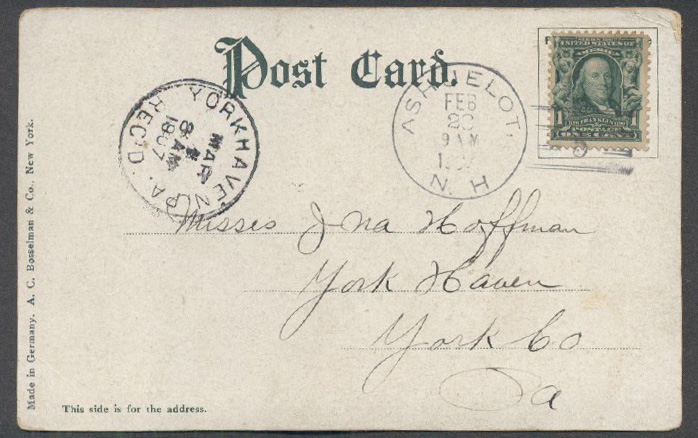 Post Card.
UNITED STATES OF
AMERICA
1 FRANKLIN 1
POSTAGE
ONE CENT
ASHUELOT,
FEB
9 AM
N. H
YORKHAVEN PA.
MAR
8 AM
1907
REC'D.
Misses Ina Hoffman
York Haven
York Co
Pa
This side is for the address.
Made in Germany. A. C. Bosselman & Co., New York.